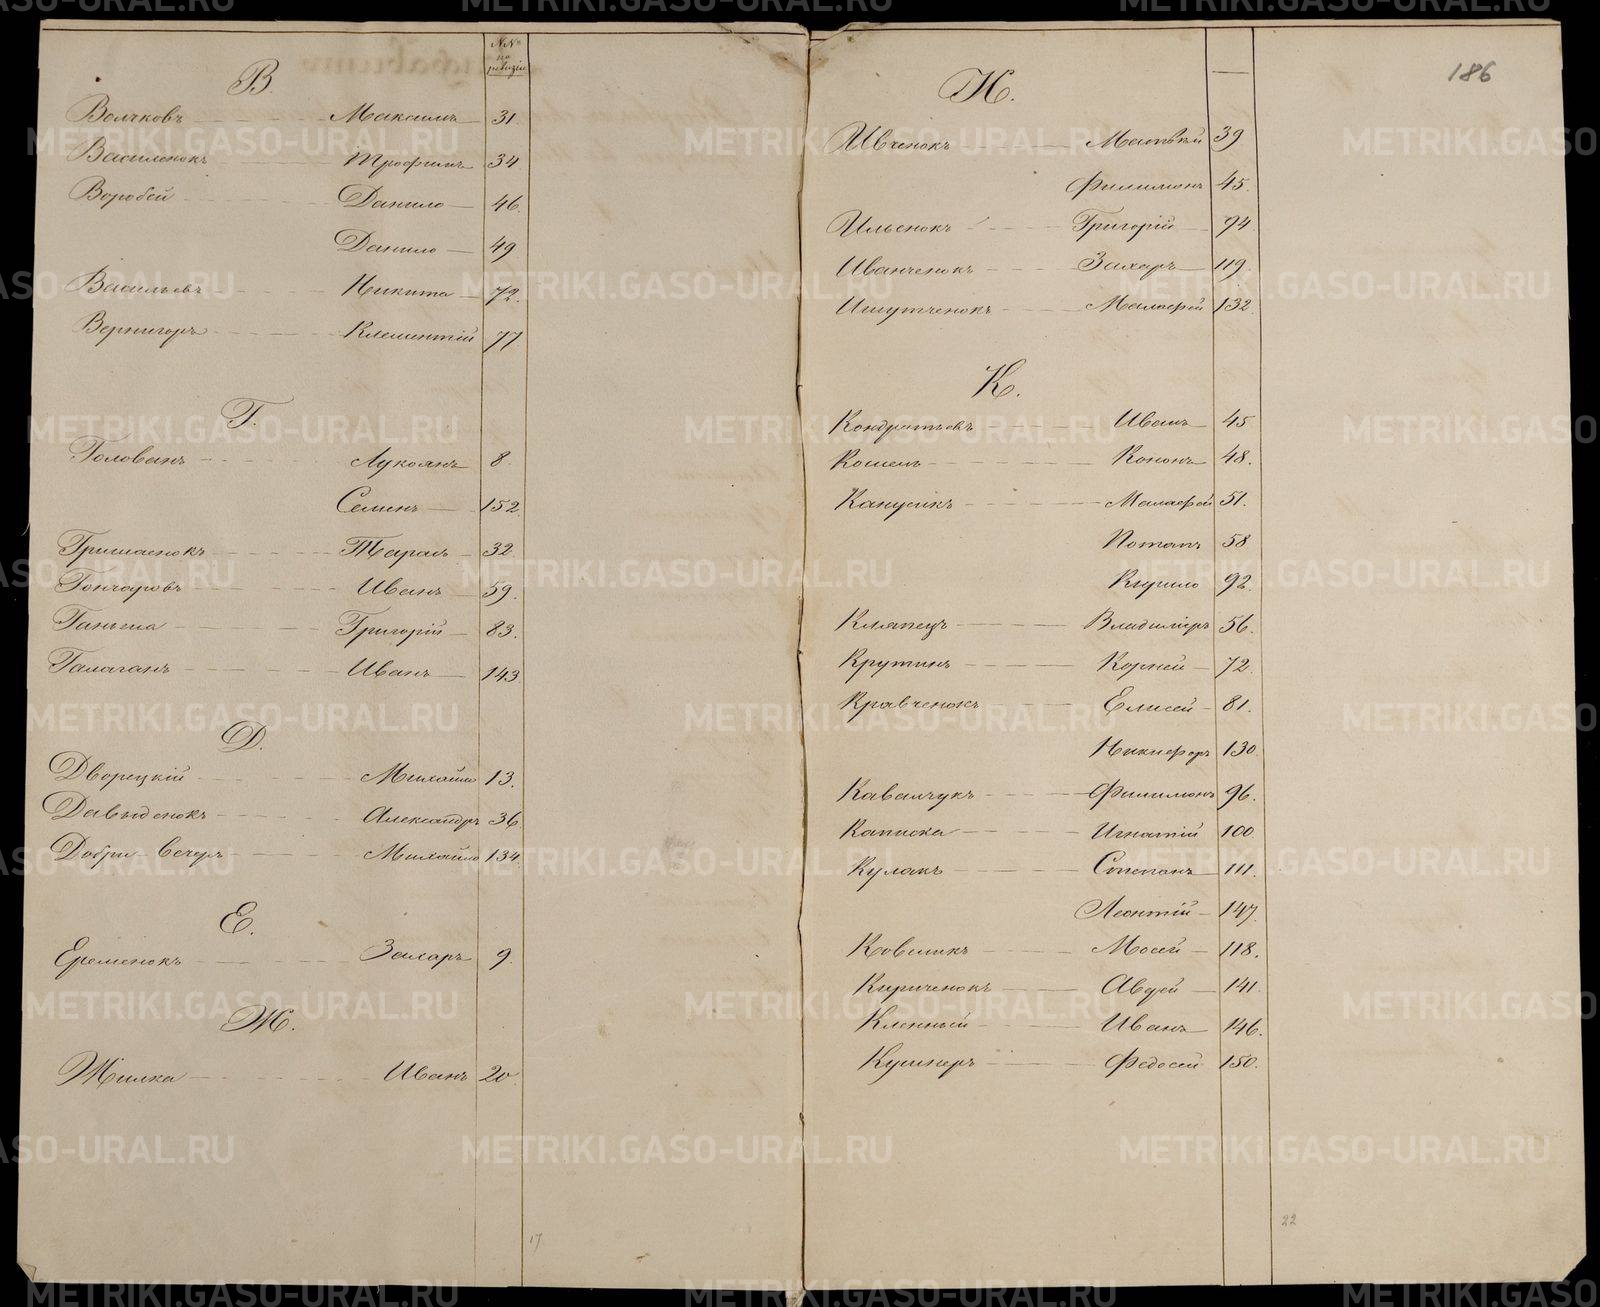 №№ по ревизіи
В.
Волчковъ Максимъ 31
Василенокъ Трофимъ 34
Воробей Данило 46.
Данило 49
Васильевъ Никита 72.
Вернигоръ Клементій 77
Г.
Голованъ Лукьянъ 8.
Семенъ 152.
Гришаенокъ Тарасъ 32
Гончаровъ Иванъ 59.
Григорій 83.
Галаганъ Иванъ 143.
Д.
Дворецкій Михайло 13.
Давыденокъ Александръ 36
Добри-Вечеръ Михайло 134
Е.
Еременокъ Захаръ 9.
Ж.
Жилка Иванъ 20.
186
И.
Ивченокъ Матвѣй 39
Филимонъ 45.
Ильенокъ Григорій 94
Иванченокъ Захаръ 119.
Ишутченокъ Малафей 132.
К.
Кондратьевъ Иванъ 45
Кошель Кононъ 48.
Канусикъ Малафей 51.
Потапъ 58
Кирило 92.
Кляпецъ Владиміръ 56.
Крутинь Корней 72
Кравченокъ Елисей 81.
Никифоръ 130
Кавалчукъ Филимонъ 96.
Игнатій 100
Кулакъ Степанъ 111.
Леонтій 147.
Ковсликъ Мосей 118.
Кириченокъ Авдей 141.
Кленный Иванъ 146.
Кушнеръ Федосей 150.
17
22
METRIKI.GASO-URAL.RU